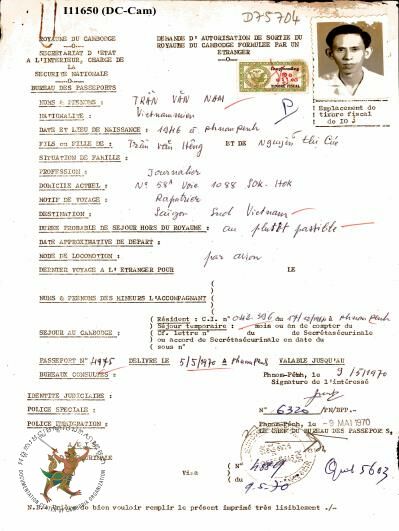 I11650 (DC-Cam)
D75704
ROYAUME DU CAMBODGE
SECRETARIAT D'ETAT
A L'INTERIEUR, CHARGE DE
LA
SECURITE NATIONALE
BUREAU DES PASSEPORTS
DEMANDE D'AUTORISATION DE SORTIE DU
ROYAUME DU CAMBODGE FORMULEE PAR UN
ETRANGER
Emplacement de
timbre fiscal
NOMS & PRENOMS : TRẦN VĂN NAM
NATIONALITE : Vietnamienne
DATE ET LIEU DE NAISSANCE : 1946 à Phnom Penh
FILS ou FILLE DE : Trần Văn Hêng ET DE Nguyễn Thị
SITUATION DE FAMILLE :
PROFESSION : Journalier
DOMICILE ACTUEL : N° 58A Voie 1088 SOK-HOK
MOTIF DE VOYAGE : Rapatrier
DESTINATION : Saigon Sud Vietnam
DUREE PROBABLE DE SEJOUR HORS DU ROYAUME : au plutôt possible
DATE APPROXIMATIVE DE DEPART :
MODE DE LOCOMOTION : par avion
DERNIER VOYAGE A L'ETRANGER POUR LE
NOMS & PRENOMS DES MINEURS L'ACCOMPAGNANT
SEJOUR AU CAMBODGE :
Résident : C.I. n° du à Phnom Penh
Séjour temporaire : mois ou an de compter du
Cf. lettre n° du de Secrétasécurinale
ou accord de Secrétasécurinale en date du
sous n°
PASSEPORT N° 4975 DELIVRE LE 5/5/1970 à Phnom Penh VALABLE JUSQU'AU
BUREAUX CONSULTES :
Phnom-Pénh, le 9/5/1970
Signature de l'intéressé
IDENTITE JUDICIAIRE :
POLICE SPECIALE :
POLICE IMMIGRATION :
N° 6320 /PR/BPP.-
Phnom-Pénh, le -9 MAI 1970
LE CHEF DU BUREAU DES PASSEPORTS,
Visa
N°
9.5.70
N.B./ bien vouloir remplir le présent imprimé très lisiblement ./-